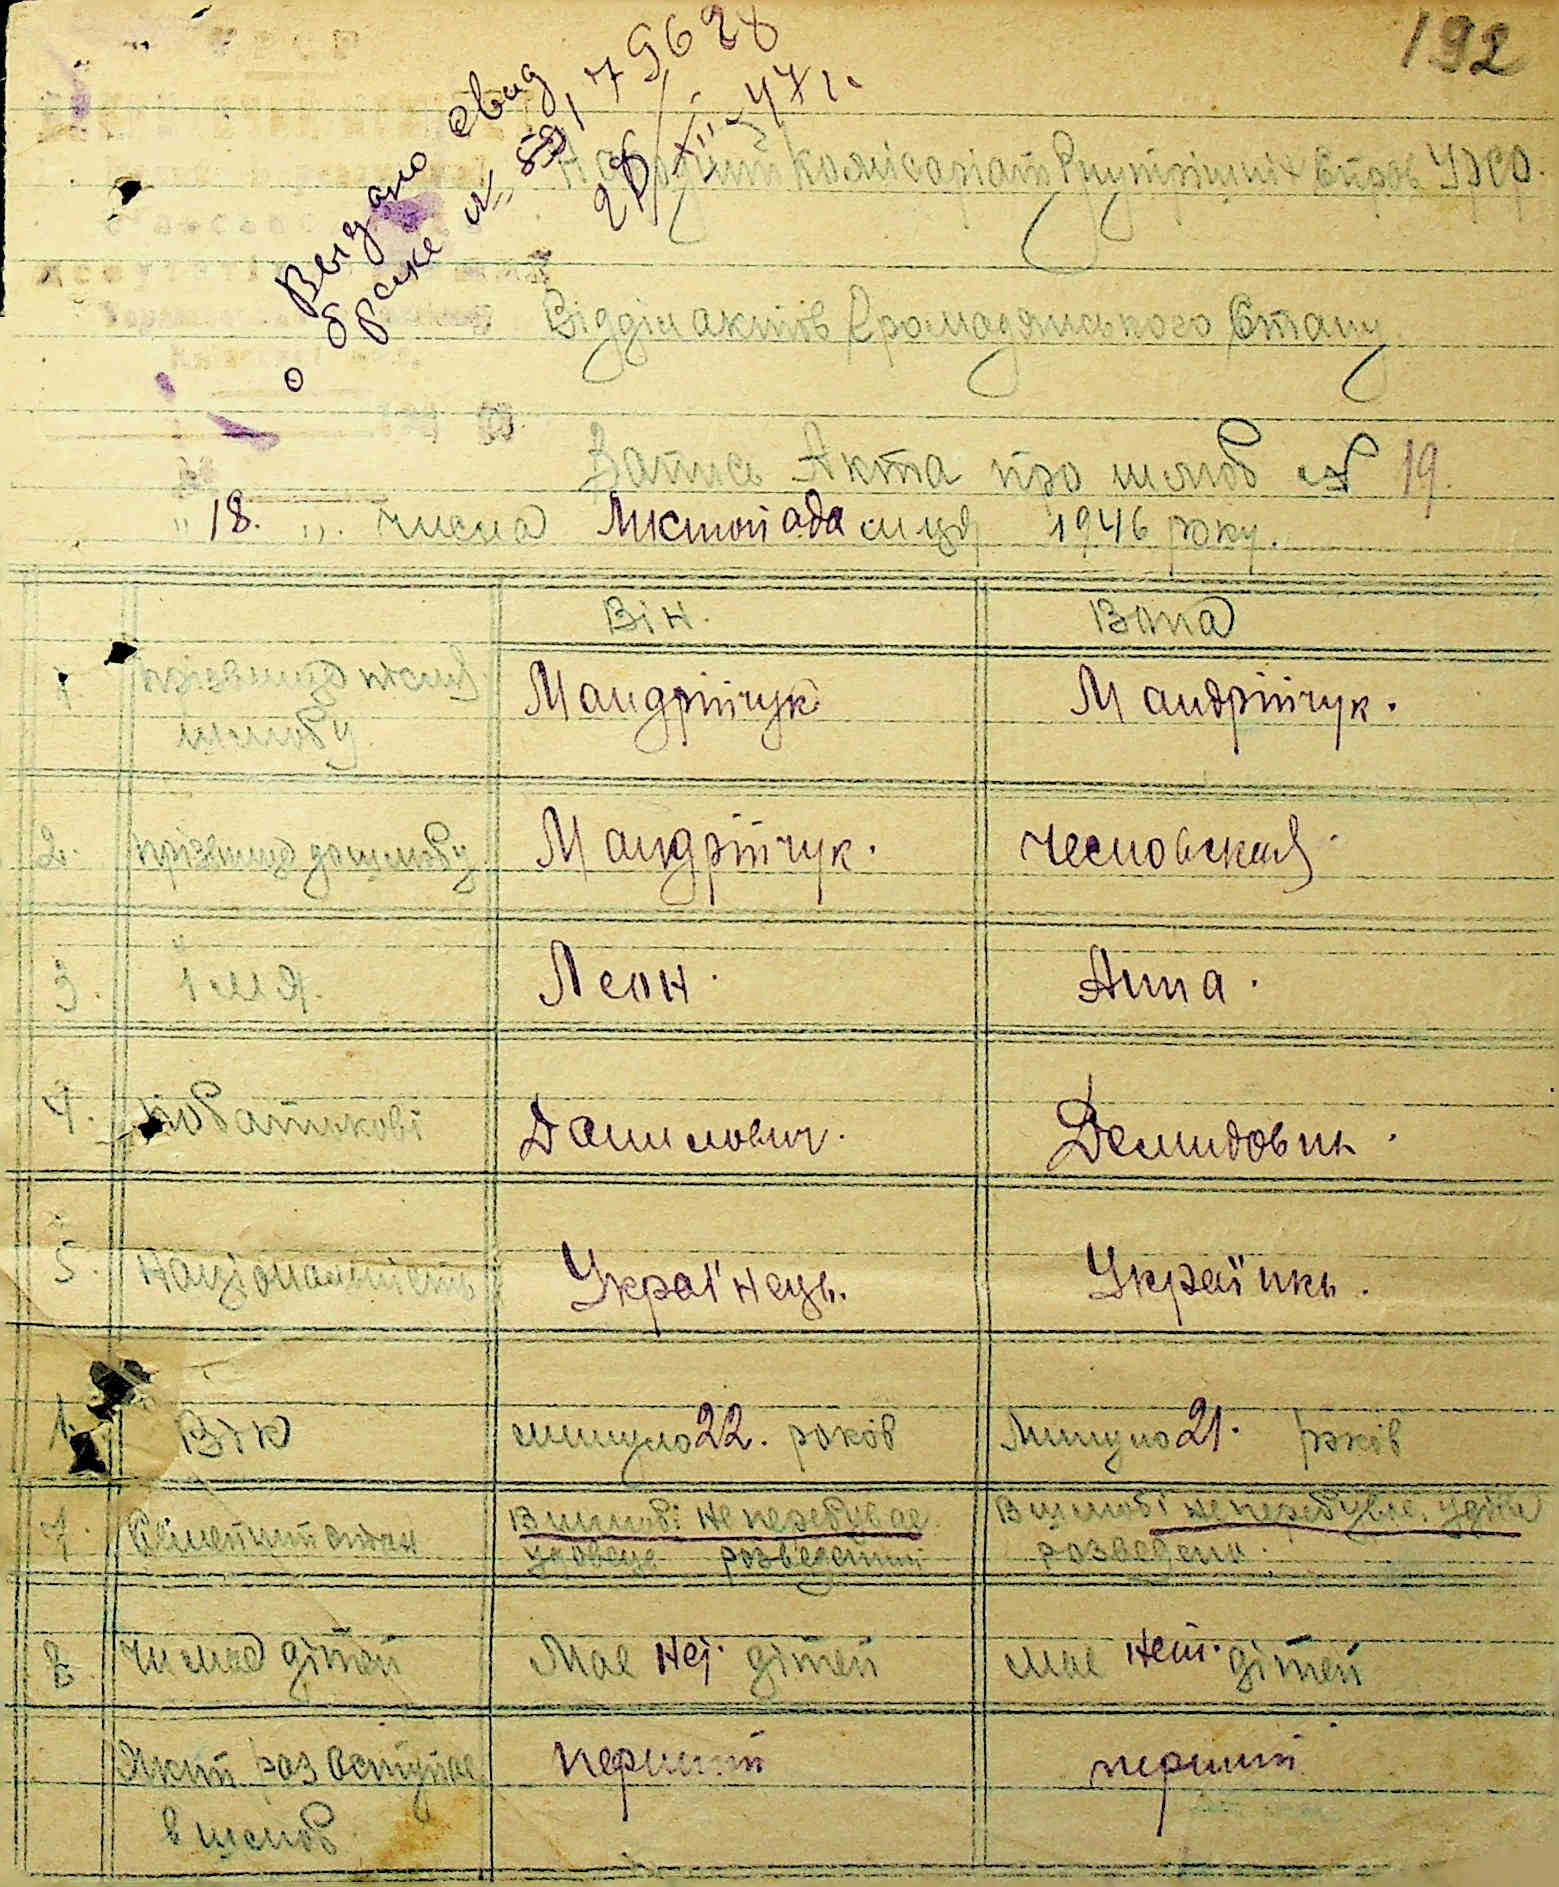 192
Выдано свид
о браке № 59, 79628
28/XII-47 г.
Народний Комісаріат Внутрішніх Справ УРСР.
Відділ актів Громадянського Стану.
Запись Акта про шлюб № 19.
"18." числа Листопада м-ця 1946 року.
Він. Вона
1. прізвище після шлюбу. Мандрійчук Мандрійчук.
2. прізвище до шлюбу Мандрійчук. Чесновская
3. Імя. Леон. Анна.
4. по батькові Данилович. Демидовн.
5. Національність Українець. Українкь.
Вік минуло 22. років Минуло 21. років
7. Сімейний стан В шлюбі не перебував. В шлюбі не перебуває. удова
удовець розведений розведена.
8. Число дітей Має неї. дітей має неї. дітей
Який раз вступає в шлюб. перший перший